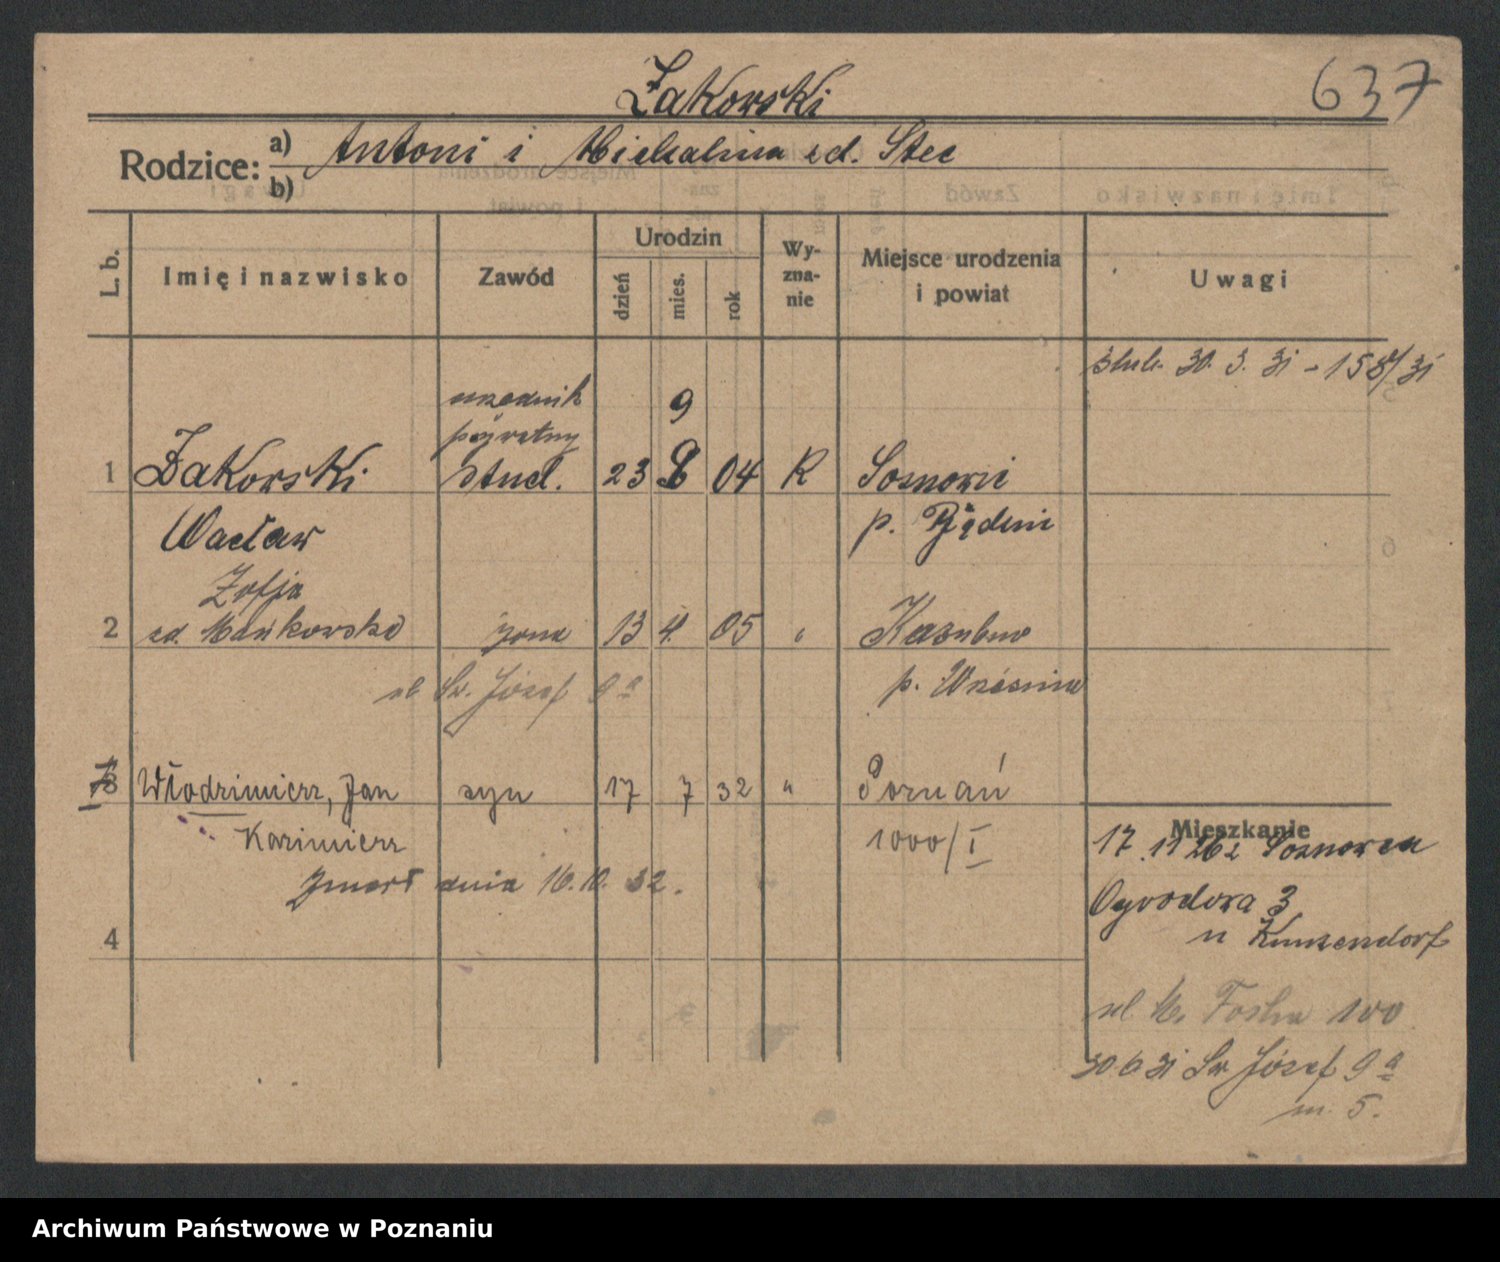 Żakowski
637
Rodzice: a) Antoni i Michalina zd. Stec
b)
L. b.
Imię i nazwisko
Zawód
Urodzin
dzień
mies.
rok
Wy-
zna-
nie
Miejsce urodzenia
i powiat
Uwagi
ślub. 30. 3. 31 - 158/31
urzędnik 9
prywatny
1 Żakowski stud. 23 8 04 R Sosnowic
Wacław p. Będzin
Zofja
2 zd. Mańkowska żona 13 4. 05 " Kaszubw
ul Św. Józef 9a p. Września
3 Włodzimierz, Jan syn 17 7 32 " Poznań
Kazimierz 1000/I
Zmarł dnia 16. 10. 32.
4
Mieszkanie
17. 11 26 z Sosnowca
Ogrodowa 3
u Kunzendorf
ul M. Focha 100
30. 6 31 Św Józef 9a
m. 5.
Archiwum Państwowe w Poznaniu